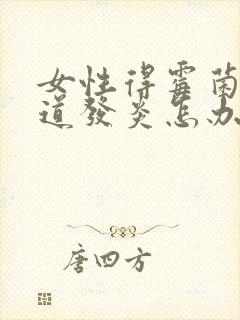 女性得霉菌
道發炎怎办
唐四方